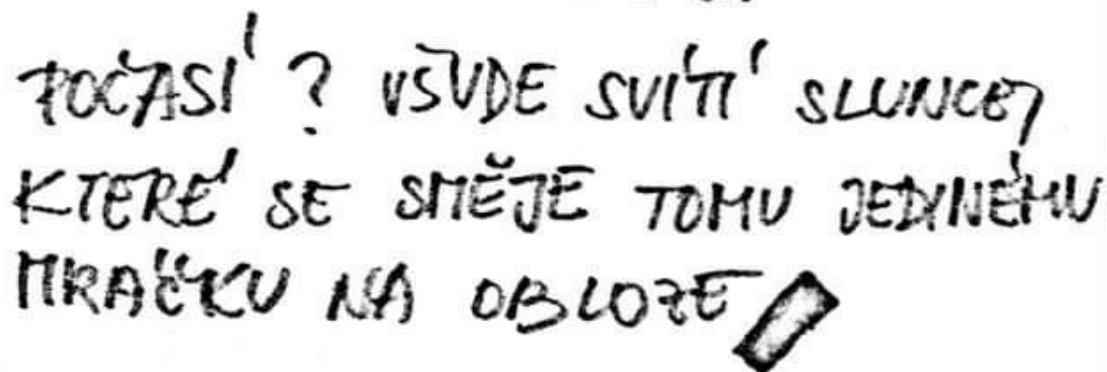 POČASÍ? VŠUDE SVÍTÍ SLUNCE,
KTERÉ SE SMĚJE TOMU JEDINÉMU
MRÁČKU NA OBLOZE